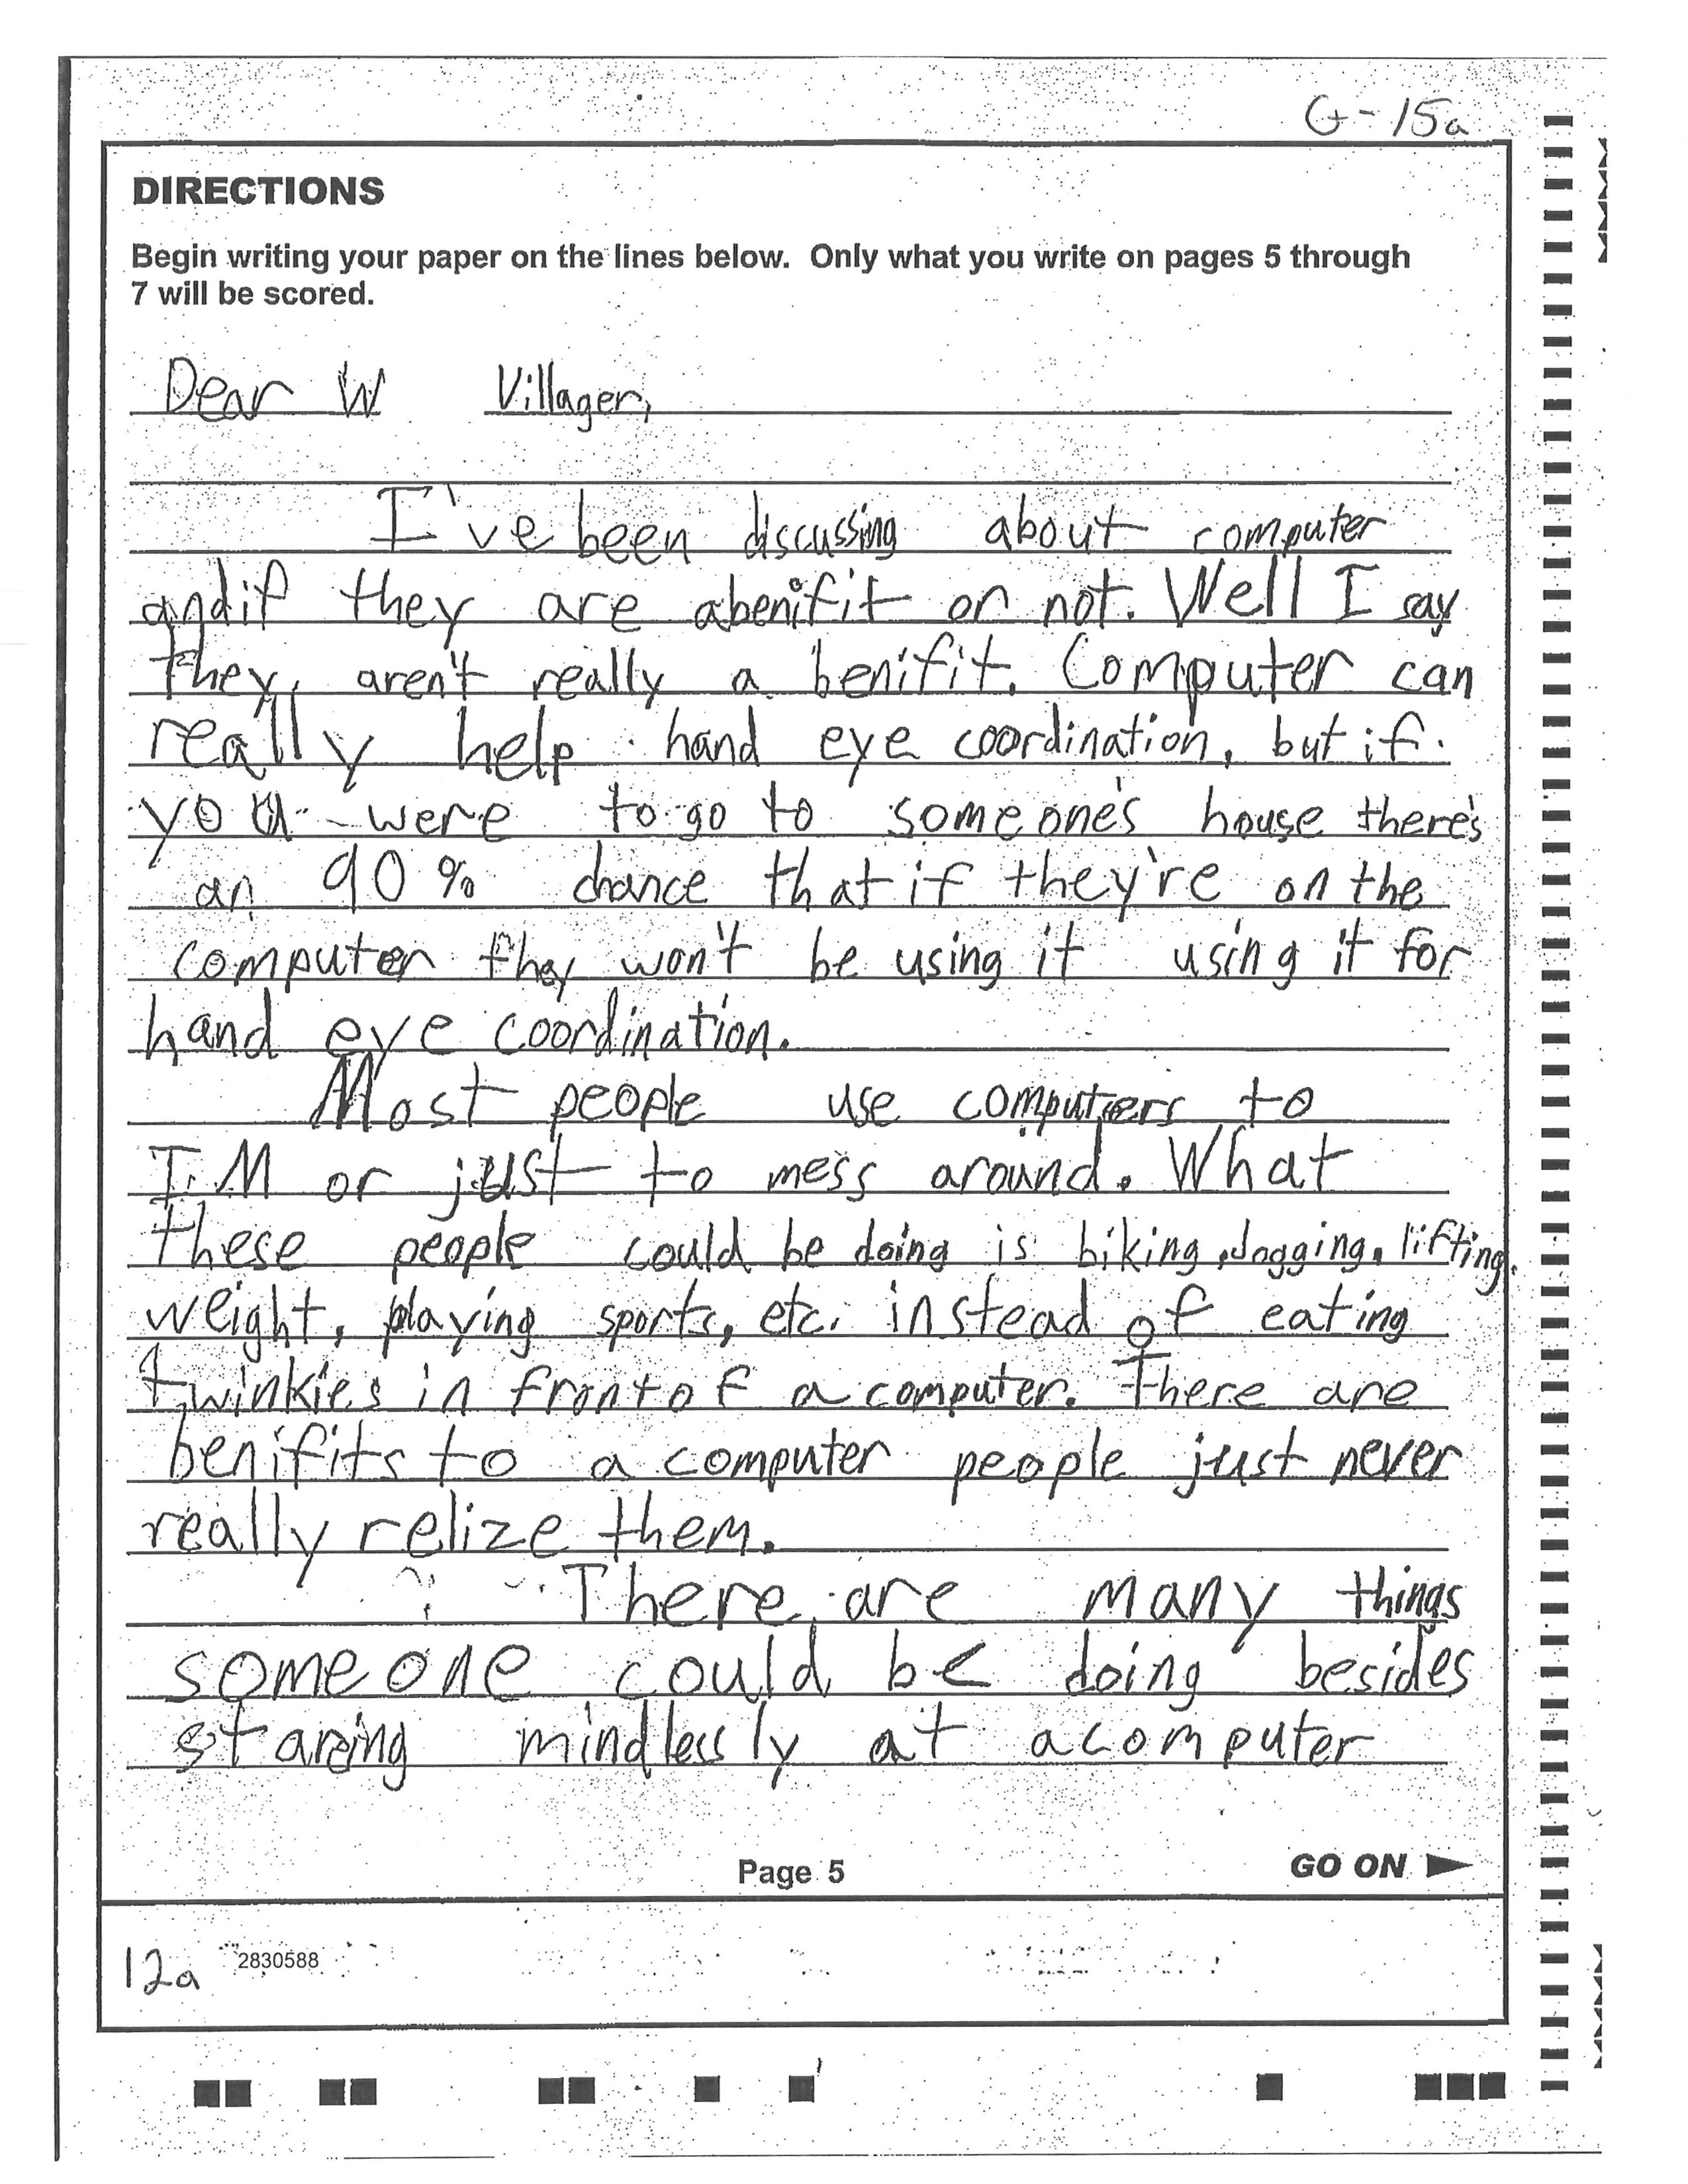 G-15a
DIRECTIONS
Begin writing your paper on the lines below. Only what you write on pages 5 through
7 will be scored.
Dear W Villager,
I've been discussing about computer
andif they are abenifit or not. Well I say
they, aren't really a benifit. Computer can
really help hand eye coordination, but if
you were to go to someone's house there's
an 90% chance that if they're on the
computer they won't be using it using it for
hand eye coordination.
Most people use computers to
I.M or just to mess around. What
these people could be doing is biking, jogging, lifting,
weight, playing sports, etc. instead of eating
twinkies in front of a computer. There are
benifits to a computer people just never
really relize them.
There are many things
someone could be doing besides
staring mindlessly at acomputer
Page 5
GO ON ►
12a 2830588